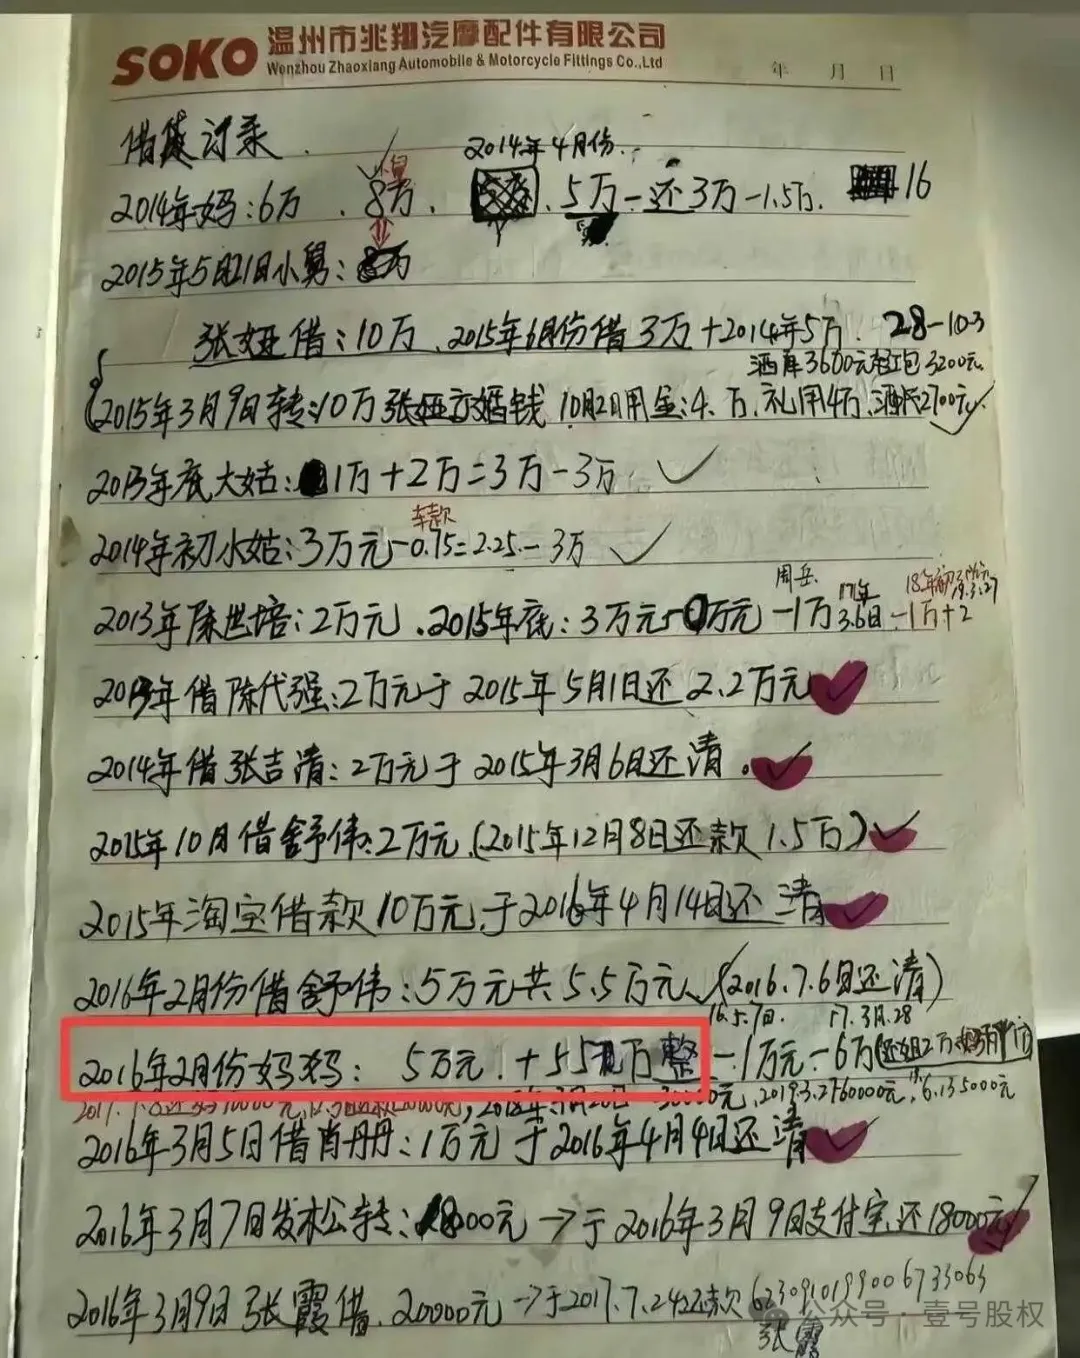 SOKO 温州市兆翔汽摩配件有限公司
Wenzhou Zhaoxiang Automobile & Motorcycle Fittings Co.,Ltd
年 月 日
借贷记录
2014年4月份
小舅
2014年妈:6万 、8万、 5万-还3万-1.5万. 16
2015年5月21日小舅:8万
张娅借:10万、2015年6月份借3万+2014年5万 28-10.3
酒席3600元 红包3200元
2015年3月9日转:10万张娅 婚钱 10月2日用金:4.万、礼用4万,酒席2700元
2013年底大姑:1万+2万=3万-3万
车款
2014年初小姑:3万元-0.75=2.25-3万
周岳 17年 18年初 19.3.27
2013年陈世培:2万元、2015年底:3万元 万元-1万 3.6日-1万+2
2013年借陈代强:2万元于2015年5月1日还2.2万元
2014年借张吉清:2万元于2015年3月6日还清.
2015年10月借舒伟:2万元(2015年12月8日还款1.5万)
2015年淘宝借款10万元于2016年4月14日还清
2016年2月份借舒伟:5万元共5.5万元、(2016.7.6日还清)
16.5.7日. 17.3月.28
2016年2月份妈妈: 5万元.+5.5 万整-1万元-6万(还姐2万
30000元,2019.3.27 60000元, 6.13 5000元
2016年3月5日借肖丹丹:1万元于2016年4月4日还清
2016年3月7日发松公转:18000元→于2016年3月9日支付宝还18000元
2016年3月9日张霞借.20000元→于2017.7.24还款 6230910199006733063
张霞
公众号·壹号股权